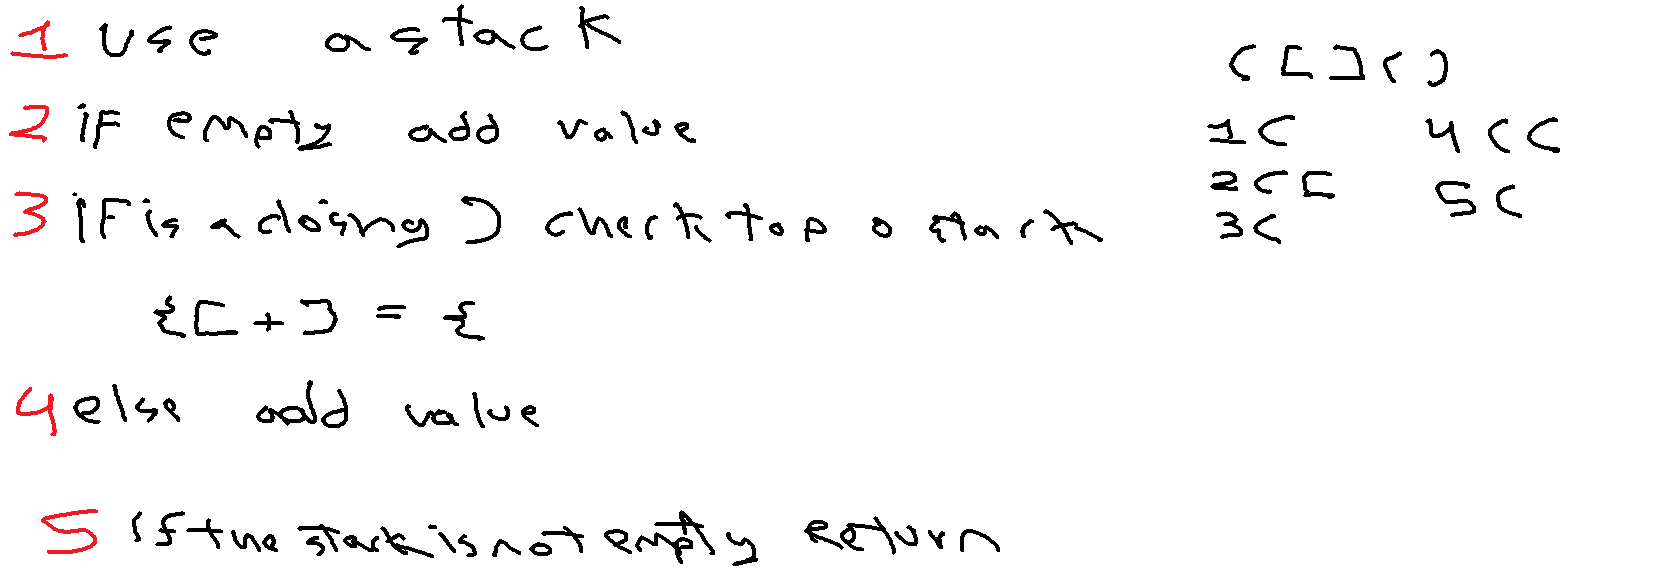 1 use a stack
2 if empty add value
3 if is a closing ) check top o stack
{[ + ] = {
4 else add value
5 if the stack is not empty return
([]()
1 (
2 ([
3 (
4 ((
5 (